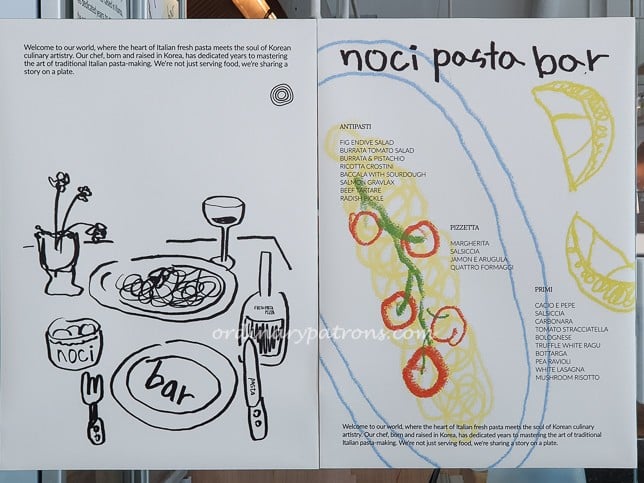 Welcome to our world, where the heart of Italian fresh pasta meets the soul of Korean
culinary artistry. Our chef, born and raised in Korea, has dedicated years to mastering
the art of traditional Italian pasta-making. We're not just serving food, we're sharing a
story on a plate.
FRESH PASTA
PIZZA
noci
bar
PASTA
noci pasta bar
ANTIPASTI
FIG ENDIVE SALAD
BURRATA TOMATO SALAD
BURRATA & PISTACHIO
RICOTTA CROSTINI
BACCALA WITH SOURDOUGH
SALMON GRAVLAX
BEEF TARTARE
RADISH PICKLE
PIZZETTA
MARGHERITA
SALSICCIA
JAMON E ARUGULA
QUATTRO FORMAGGI
PRIMI
CACIO E PEPE
SALSICCIA
CARBONARA
TOMATO STRACCIATELLA
BOLOGNESE
TRUFFLE WHITE RAGU
BOTTARGA
PEA RAVIOLI
WHITE LASAGNA
MUSHROOM RISOTTO
Welcome to our world, where the heart of Italian fresh pasta meets the soul of Korean culinary
artistry. Our chef, born and raised in Korea, has dedicated years to mastering the art of traditional
Italian pasta-making. We're not just serving food, we're sharing a story on a plate.
ordinarypatrons.com